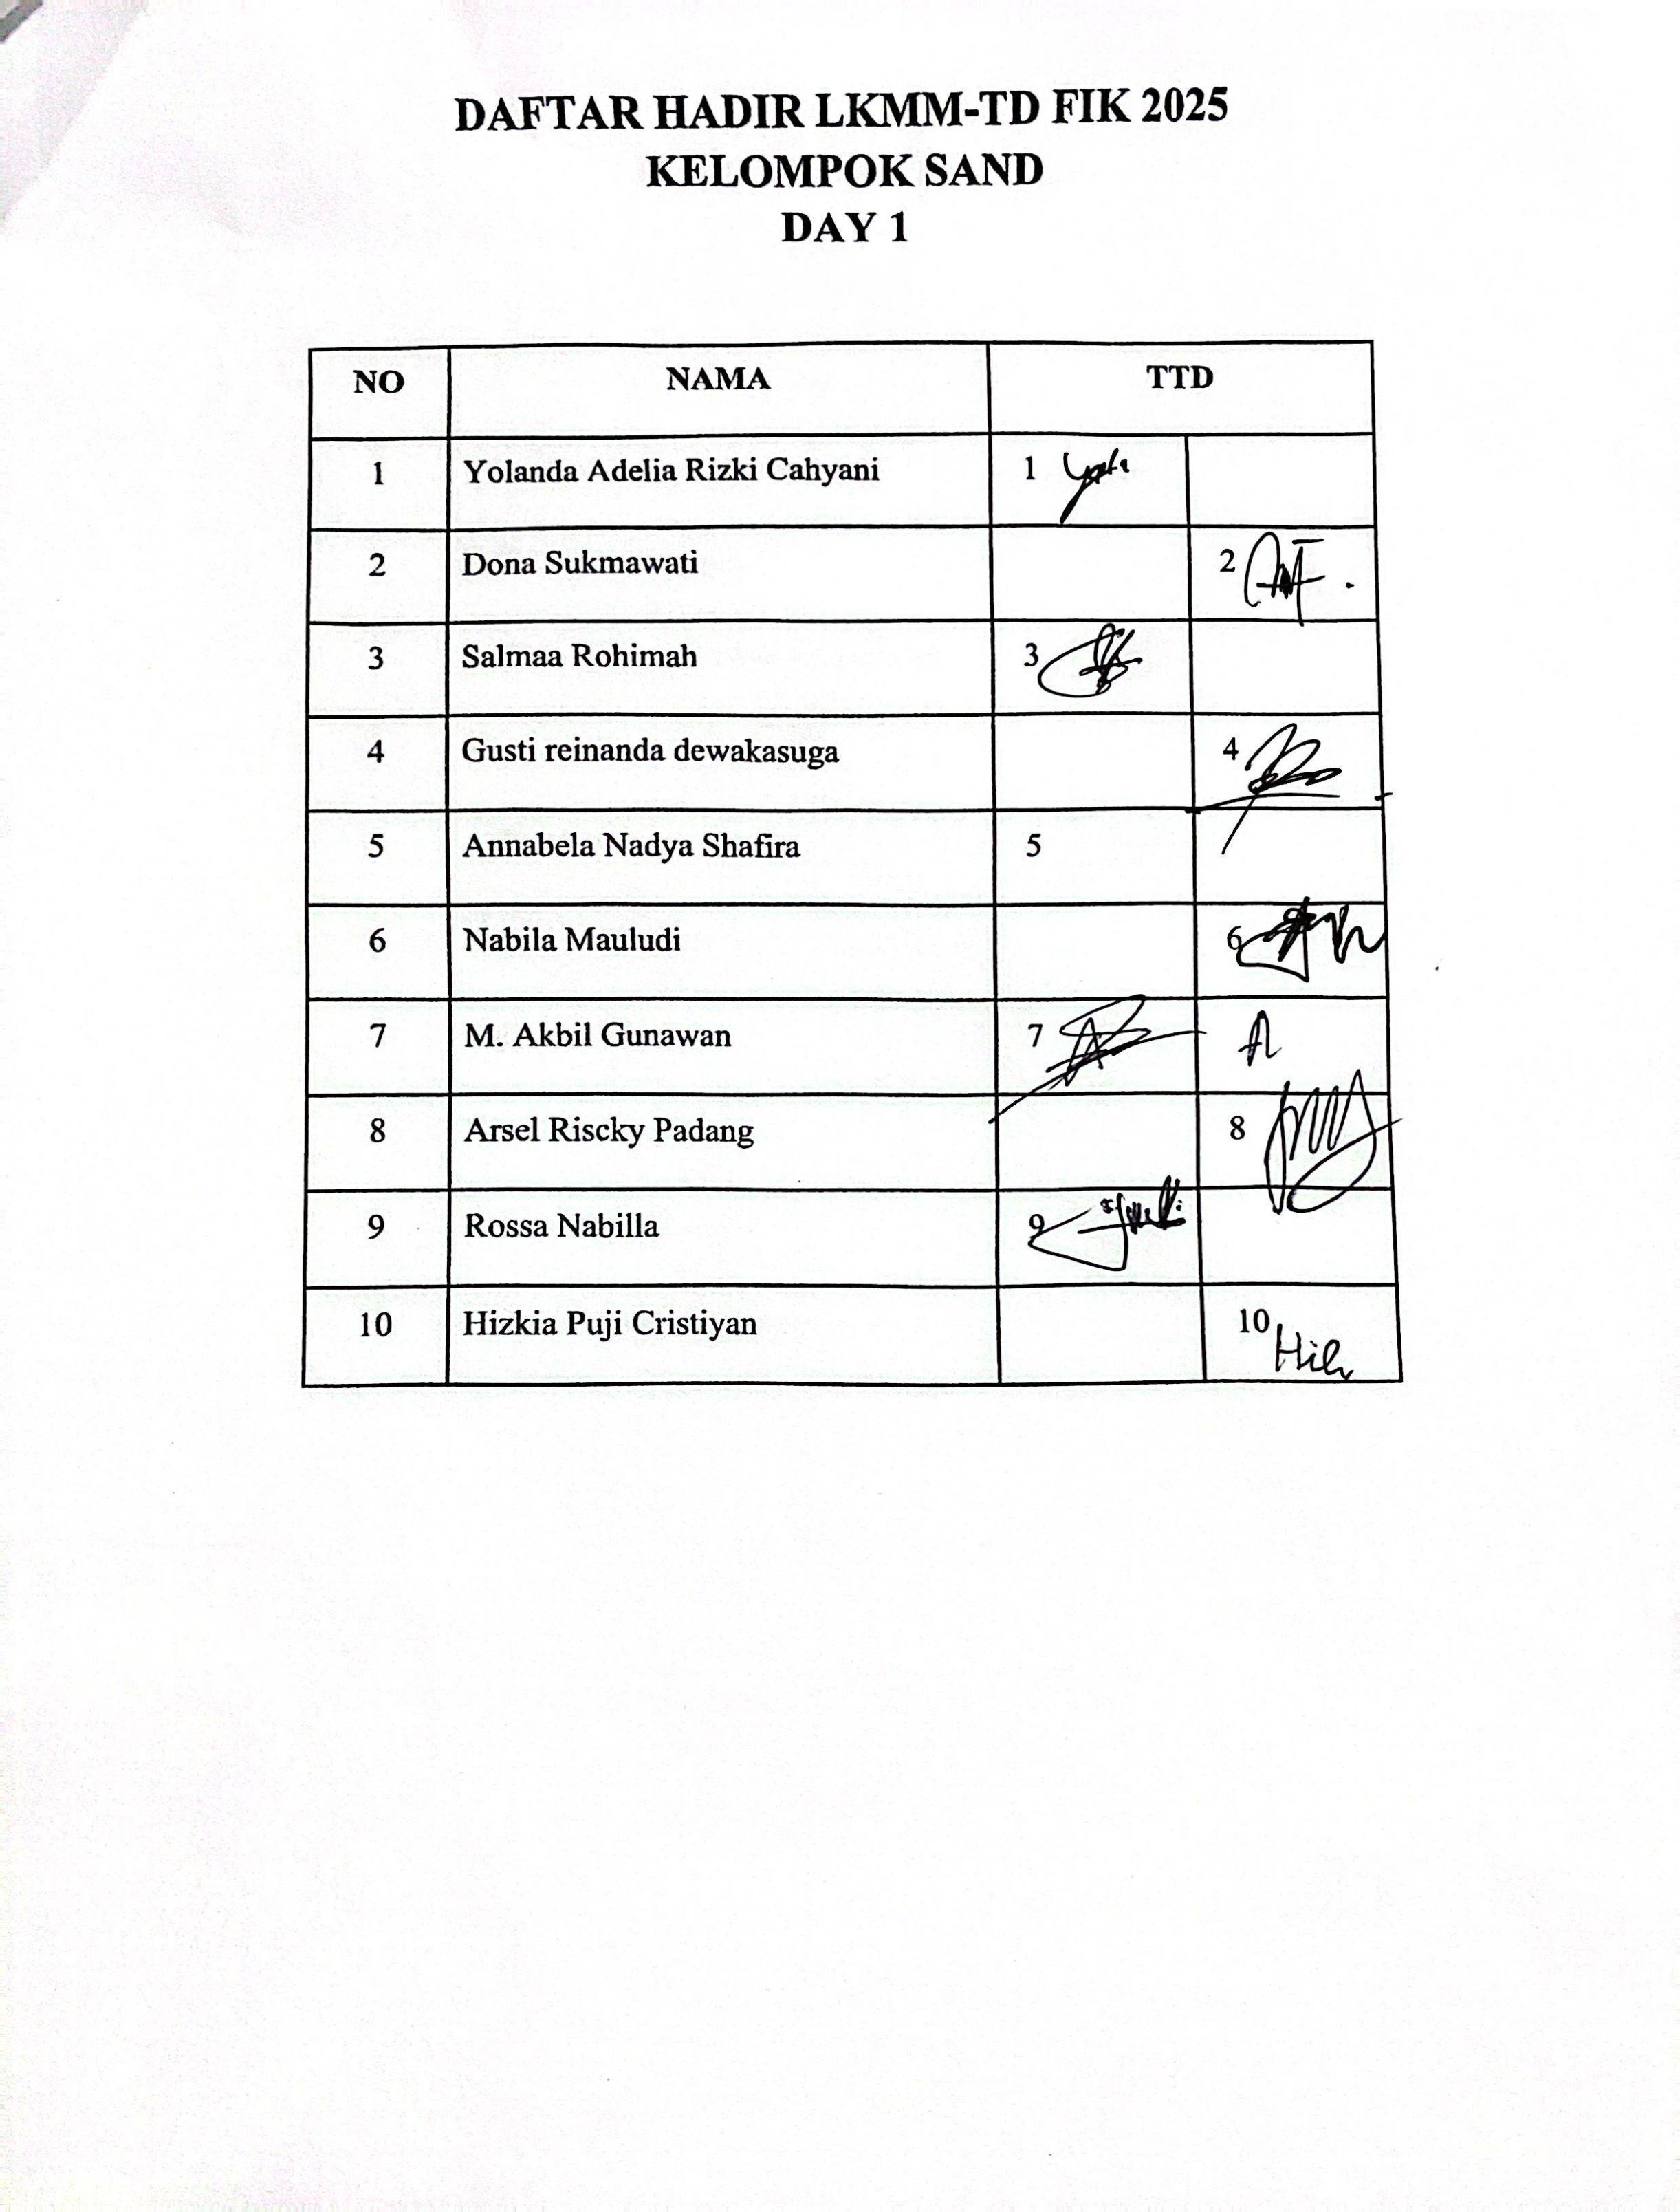 DAFTAR HADIR LKMM-TD FIK 2025
KELOMPOK SAND
DAY 1
NO NAMA TTD
1 Yolanda Adelia Rizki Cahyani 1
2 Dona Sukmawati 2
3 Salmaa Rohimah 3
4 Gusti reinanda dewakasuga 4
5 Annabela Nadya Shafira 5
6 Nabila Mauludi 6
7 M. Akbil Gunawan 7
8 Arsel Riscky Padang 8
9 Rossa Nabilla 9
10 Hizkia Puji Cristiyan 10